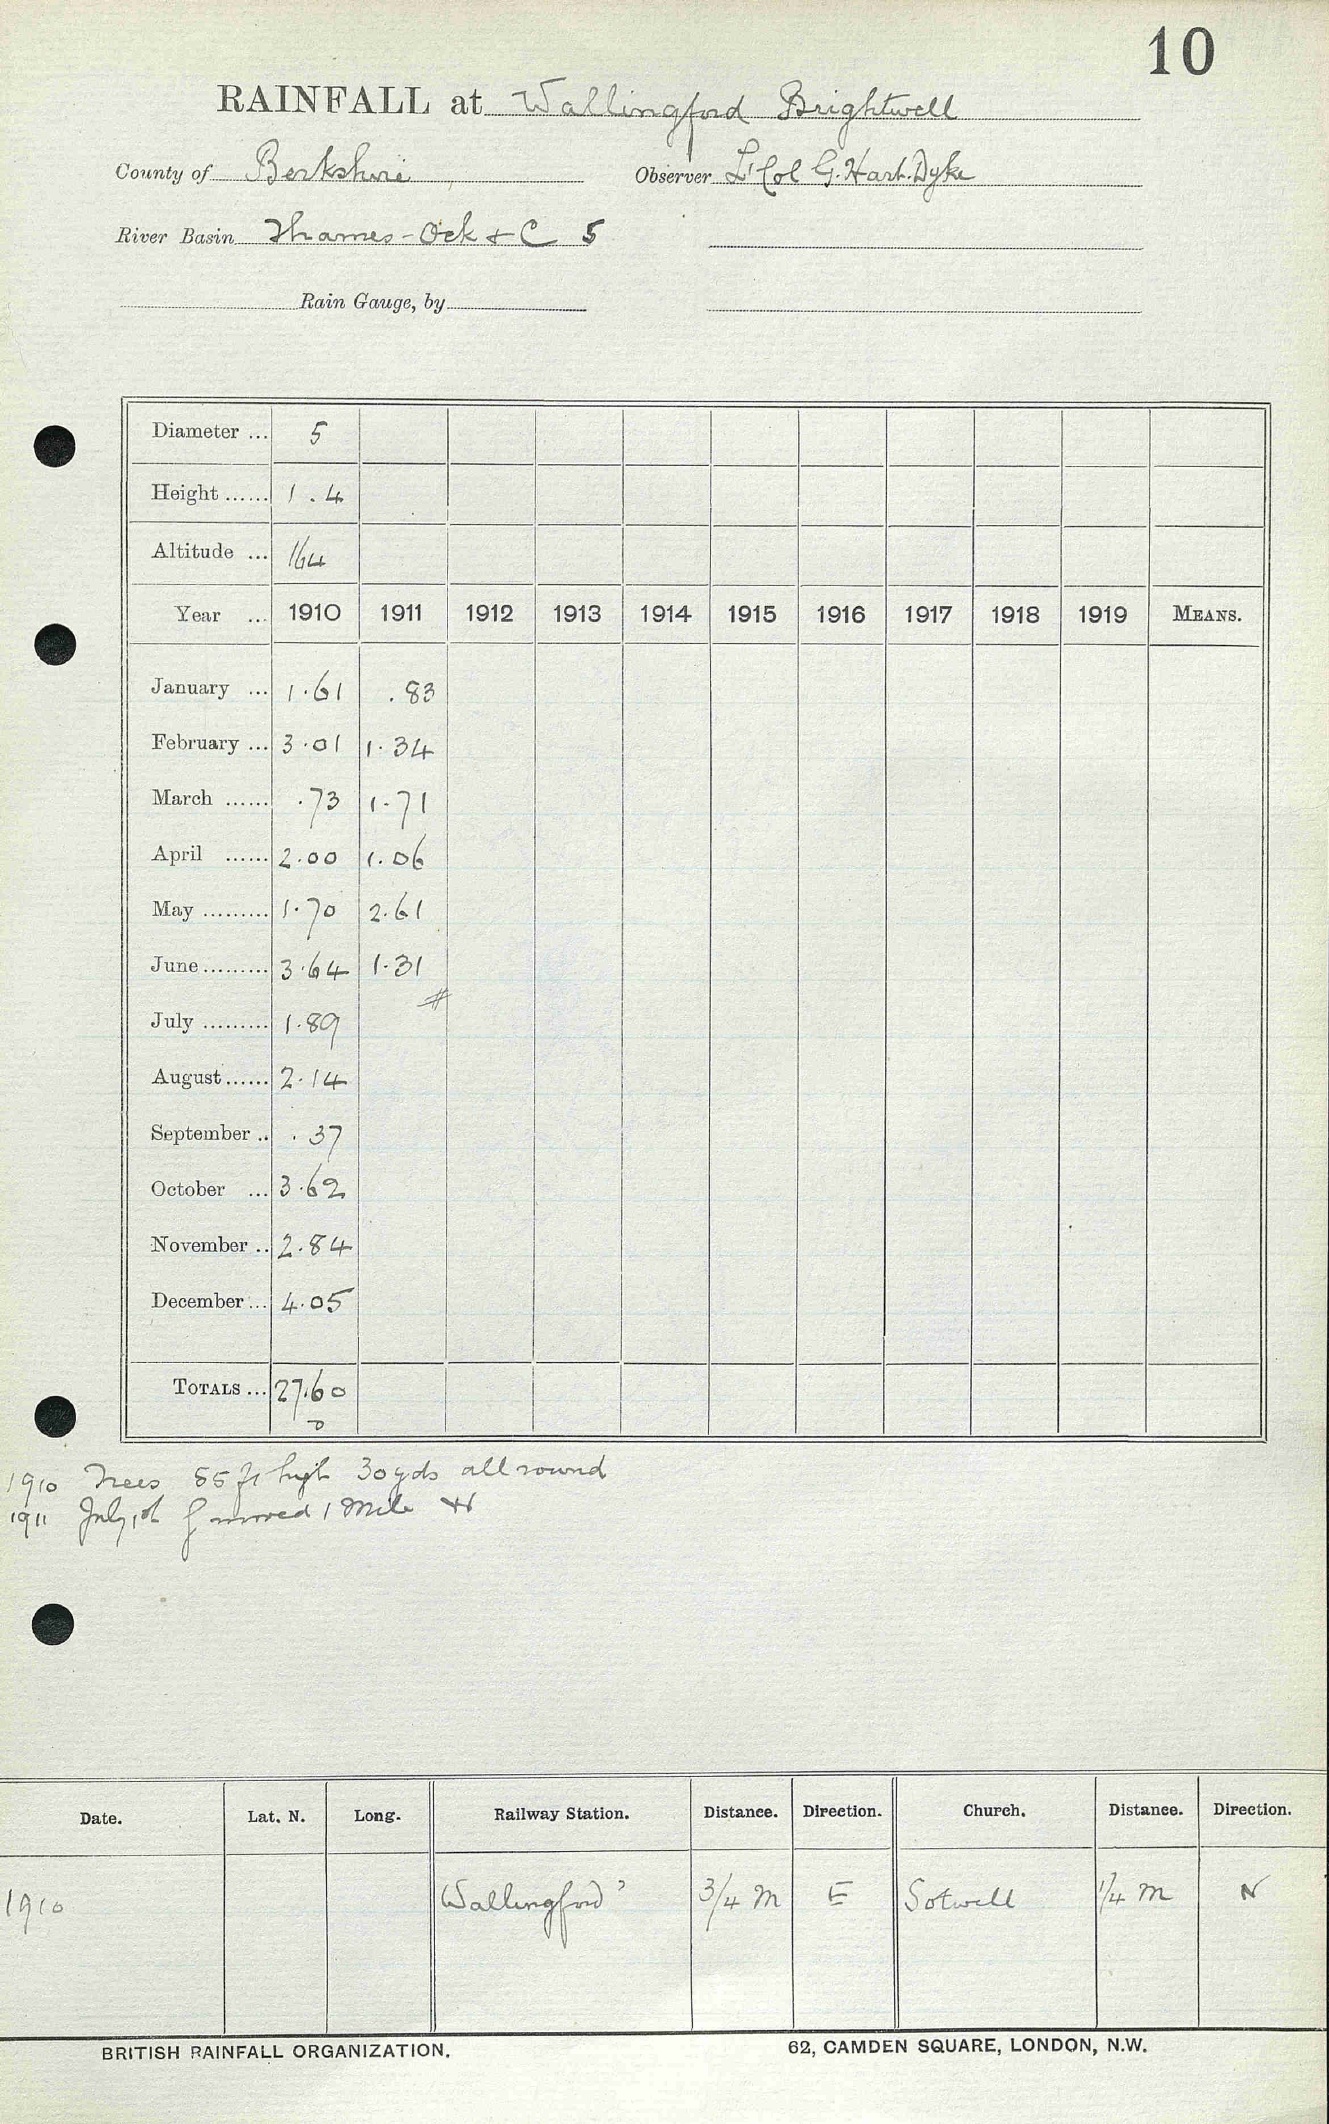 10
RAINFALL at Wallingford Brightwell
County of Berkshire Observer Lt Col G. Hart. Dyke
River Basin Thames - Ock & C 5
Rain Gauge, by
Diameter ... 5
Height ...... 1 . 4
Altitude ... 164
Year ... 1910 1911 1912 1913 1914 1915 1916 1917 1918 1919 MEANS.
January ... 1.61 .83
February ... 3.01 1.34
March ...... .73 1.71
April ...... 2.00 1.06
May ......... 1.70 2.61
June ......... 3.64 1.31
July ......... 1.89
August ...... 2.14
September .. .37
October ... 3.62
November .. 2.84
December ... 4.05
TOTALS ... 27.60
1910 Trees 55 ft high 30 yds all round
1911 July 1st g moved 1 Mile W
Date. Lat. N. Long. Railway Station. Distance. Direction. Church. Distance. Direction.
1910 Wallingford 3/4 M E Sotwell 1/4 M N
BRITISH RAINFALL ORGANIZATION. 62, CAMDEN SQUARE, LONDON, N.W.